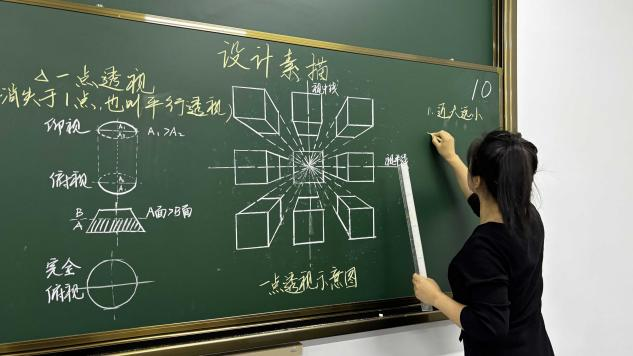 设计素描
10
△一点透视
消失于1点,也叫平行透视)
视中线
1.近大远小
仰视
A₁
A₂
A₁>A₂
视平线
俯视
B
A
A面>B角
完全
俯视
一点透视示意图